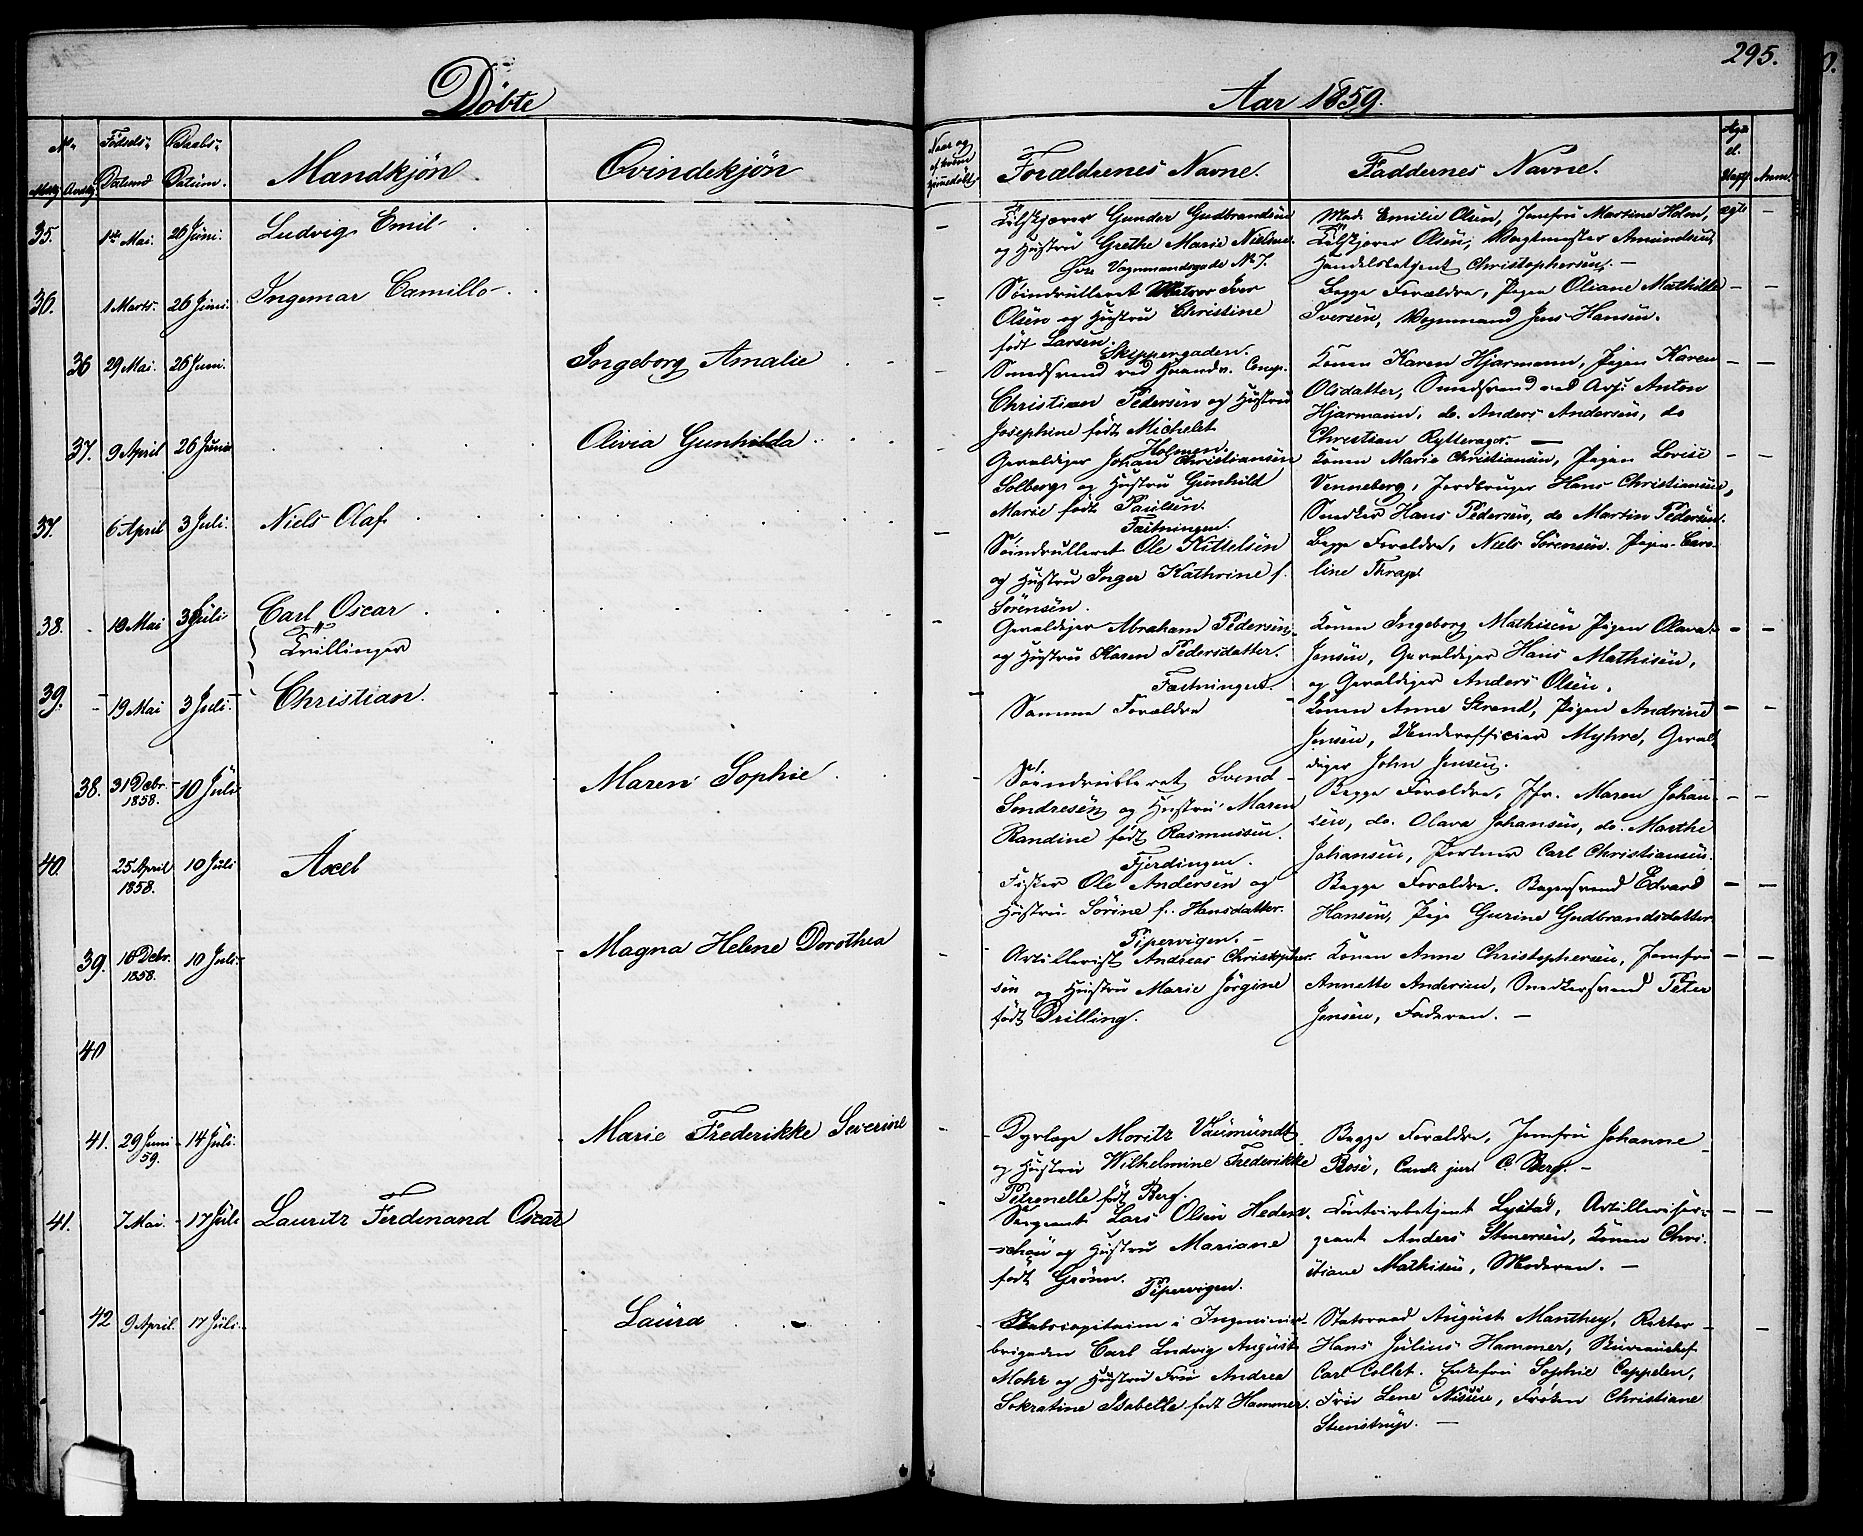 295.
Døbte
Aar 1859.
No
Fødsels-
Daabs-
Datum
Datum.
Mandkjøn.
Qvindekjøn
Naar og
hjemmedøbt
Forældrenes Navne.
Faddernes Navne.
Ægte
el.
Uægte
Anm.
35. 1ste Mai. 26 Juni. Ludvig Emil
Gunder Gudbrandsen
og Hustru Grethe Marie Nielsen.
Øvre Vognmandsgade No 7.
Mad. Emilie Olsen, Jomfru Martine Holm,
Olsen, Vagtmester Amundsen,
Handelsbetjent Christophersen. —
ægte
36. 1 Marts. 26 Juni. Ingemar Camillo
Søindrulleret Matros Iver
Olsen og Hustru Christine
født Larsen.
Skippergaden.
Begge Forældre, Pigen Oliane Mathilde
Iversen, Vognmand Jens Hansen.
36 29 Mai. 26 Juni. Ingeborg Amalie
Smedsvend ved Haandv. Comp.
Christian Pedersen og Hustru
Josephine født Michelet
Holmen.
Konen Karen Hjarmann, Pigen Karen
Olsdatter, Smedsvend ved Ars. Anton
Hjarmann, do. Anders Andersen, do
Christian Rytterager. —
37. 9 April 26 Juni Olivia Gunhilda
Gevaldiger Johan Christiansen
Solberg og Hustru Gunhild
Marie født Paulsen.
Fæstningen.
Konen Marie Christiansen, Pigen Lovise
Venneberg, Jordbruger Hans Christiansen,
Snedker Hans Pedersen, do Martin Pedersen.
37. 6 April 3 Juli. Niels Olaf
Søindrulleret Ole Kittelsen
og Hustru Inger Kathrine f.
Sørensen.
Begge Forældre, Niels Sørensen. Pigen Caro-
line Thrap.
38. 19 Mai 3 Juli Carl Oscar
Tvillinger
Gevaldiger Abraham Pedersen
og Hustru Karen Pedersdatter.
Fæstningen.
Konen Ingeborg Mathisen Pigen Olava
Jensen, Gevaldiger Hans Mathisen,
og Gevaldiger Anders Olsen.
39. 19 Mai 3 Juli. Christian.
Samme Forældre
Konen Anne Strand, Pigen Andrine
Jensen, Underofficier Myhre, Geval-
diger John Jensen.
38. 31 Decbr. 1858. 10 Juli Maren Sophie
Søindrulleret Svend
Sondresen og Hustru Maren
Randine født Rasmussen.
Fjerdingen.
Begge Forældre, Jfr. Maren Johan-
sen, do. Olava Johansen, do. Marthe
Johansen, Portner Carl Christiansen.
40. 25 April 1858. 10 Juli Axel
Fisker Ole Andersen og
Hustru Sørine f. Hansdatter.
Pipervigen. —
Begge Forældre. Bagersvend Edvard
Hansen, Pige Gurine Gudbrandsdatter
39. 16 Decbr. 1858. 10 Juli. Magna Helene Dorothea
Artillerist Andreas Christopher-
sen og Hustru Marie Jørgine
født Drilling.
Konen Anne Christophersen, Jomfru
Annette Andersen, Snedkersvend Peter
Jensen, Faderen. —
40
41. 29 Juni 59. 14 Juli. Marie Frederikke Severine
Dyrlæge Moritz Vaumundt
og Hustru Wilhelmine Frederikke
Petronelle født Berg.
Begge Forældre, Jomfru Johanne
Rose, Cand. jur. C. Berg. —
41. 7 Mai. 17 Juli Lauritz Ferdinand Oscar
Sergeant Lars Olsen Heden-
schou og Hustru Mariane
født Grønn.
Pipervigen.
Contoirbetjent Lystad, Artilleriser-
geant Anders Stenersen, Konen Chri-
stiane Mathisen, Moderen. —
42 9 April. 17 Juli. Laura
Stabscapitaine i Ingenieur-
brigaden Carl Ludvig August
Mohr og Hustru Frue Andrea
Sokratine Isabella født Hammer.
Statsraad August Manthey, Rector
Hans Julius Hammer, Bureauchef
Carl Collet. Enkefru Sophie Cappelen,
Frue Lene Nissen, Frøken Christiane
Steenstrup. —